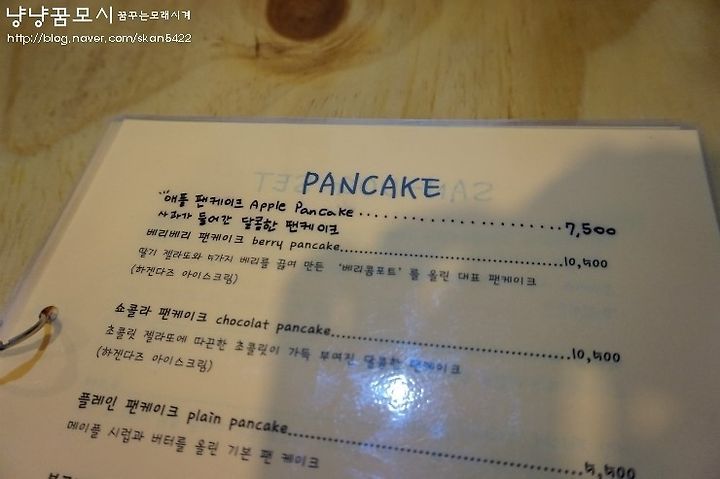 냥냥꿈모시 꿈꾸는모래시계
http://blog.naver.com/skan5422
PANCAKE
애플 팬케이크 Apple Pancake......................7,500
사과가 들어간 달콤한 팬케이크
베리베리 팬케이크 berry pancake......................10,500
딸기 젤라또와 4가지 베리를 끓여 만든 '베리콤포트' 를 올린 대표 팬케이크
(하겐다즈 아이스크림)
쇼콜라 팬케이크 chocolat pancake......................10,500
초콜릿 젤라또에 따끈한 초콜릿이 가득 부여진 달콤한 팬케이크
(하겐다즈 아이스크림)
플레인 팬케이크 plain pancake......................5,500
메이플 시럽과 버터를 올린 기본 팬 케이크